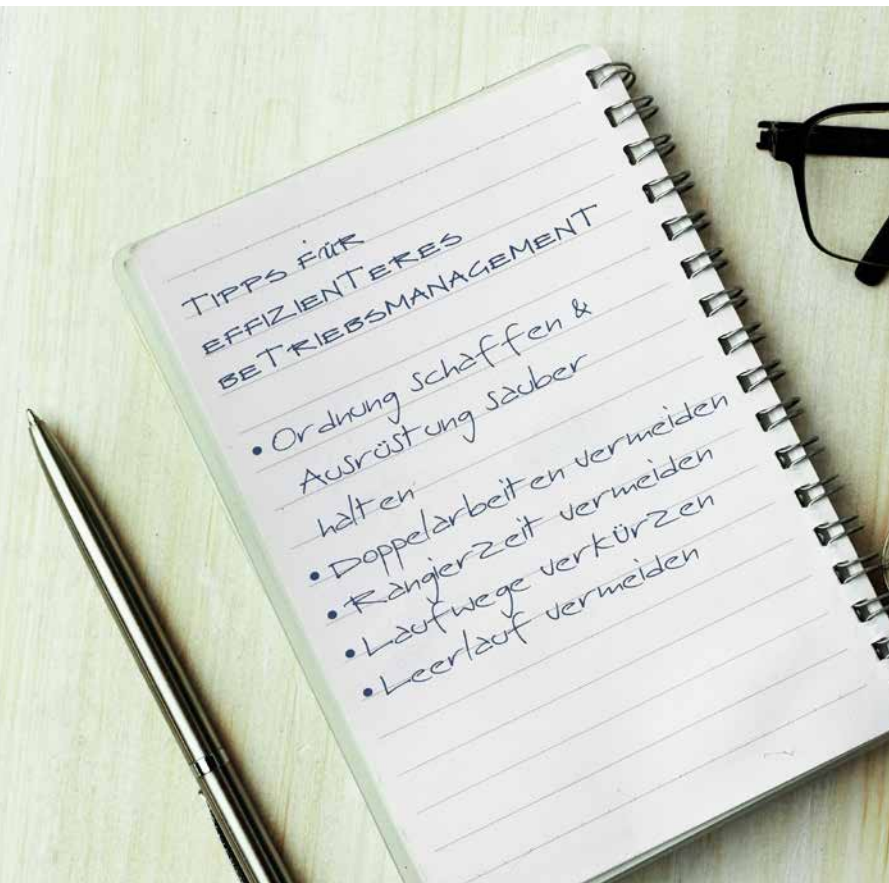 TIPPS FÜR
EFFIZIENTERES
BETRIEBSMANAGEMENT
• Ordnung schaffen &
Ausrüstung sauber
halten
• Doppelarbeiten vermeiden
• Rangierzeit vermeiden
• Laufwege verkürzen
• Leerlauf vermeiden